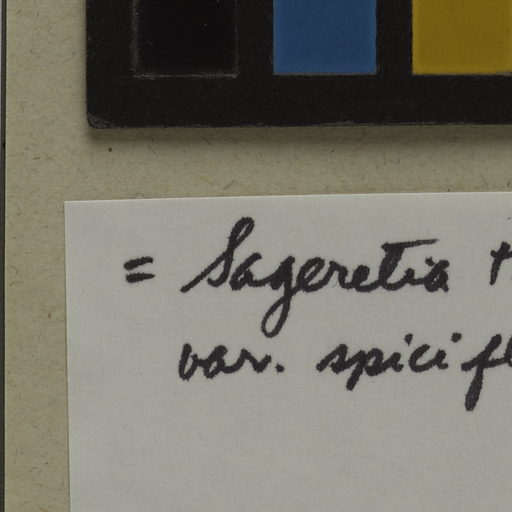 = Sageretia t
var. spicifl